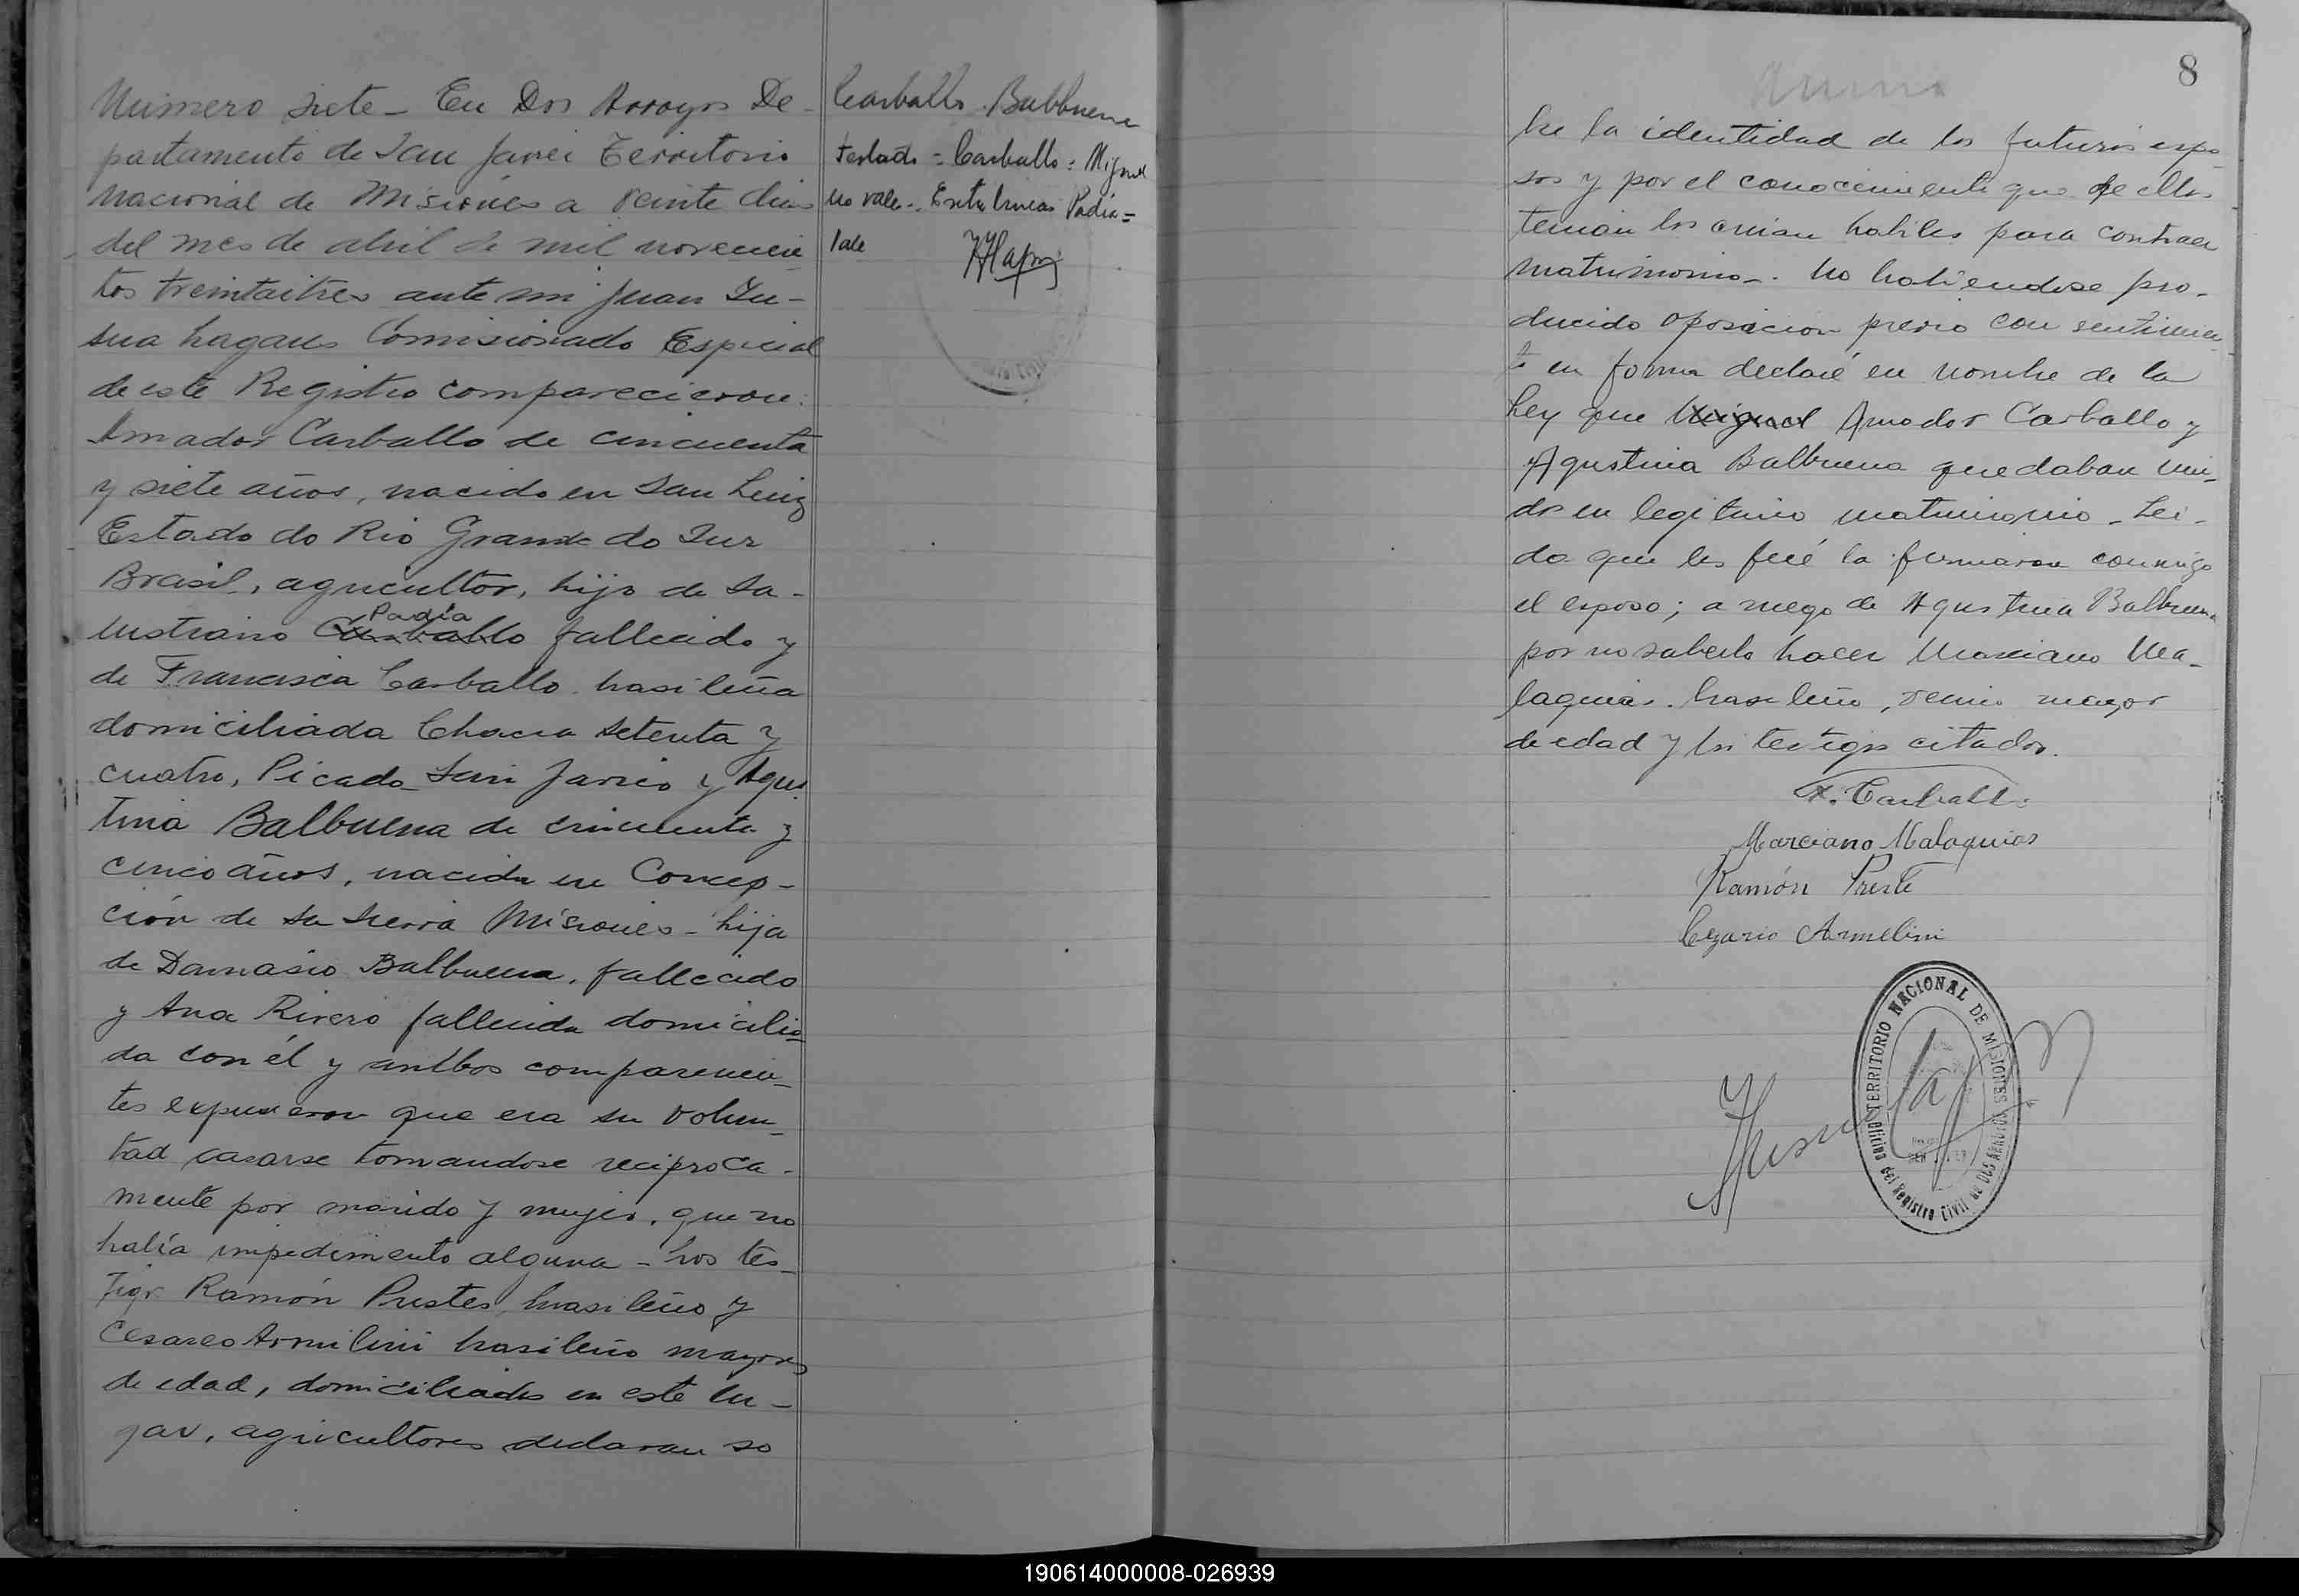 Número siete - En Dos Arroyos De-
partamento de San Javier Territorio
nacional de Misiones a veinte dias
del mes de abril de mil novecien
tos treintaitres ante mi Juan
Comisionado Especial
de este Registro comparecieron:
Amador Carballo de cincuenta
y siete años, nacido en San Luiz
Estado do Rio Grande do Sur
Brasil, agricultor, hijo de Sa-
lustiano Carballo Padia fallecido y
de Francisca Carballo brasileña
domiciliada Chacra setenta y
cuatro, Picada San Javier y Agus
tina Balbuena de cincuenta y
cinco años, nacida en Concep-
ción de la Sierra Misiones - hija
de Damasio Balbuena, fallecido
y Ana Rivero fallecida domicilia
da con él y ambos comparecien-
tes expusieron que era su volun-
tad casarse tomandose reciproca-
mente por marido y mujer, que no
había impedimento alguna - Los tes-
tigos Ramón Prestes, brasileño y
Cesareo Armilini brasileño mayores
de edad, domiciliados en este lu-
gar, agricultores declaran so
Carballo Balbuena
testado = Carballo : Miguel
no vale -. Entre lineas Padia =
Vale
8
bre la identidad de los futuros espo
sos y por el conocimiento que de ellos
tenian los creian habiles para contraer
matrimonio -. No habiendose pro-
ducido oposicion previo consentimien-
to en forma declaré en nombre de la
Ley que Miguel Amador Carballo y
Agustina Balbuena quedaban uni-
dos en legitimo matrimonio - Lei-
da que les fué la firmaron conmigo
el esposo; a ruego de Agustina Balbuena
por no saberlo hacer Marciano Ma-
laquias. brasileño, vecino mayor
de edad y los testigos citados.
A. Carballo
Marciano Malaquias
Ramón Preste
Cezario Armelini
TERRITORIO NACIONAL DE MISIONES
Oficina del Registro Civil de DOS ARROYOS
190614000008-026939